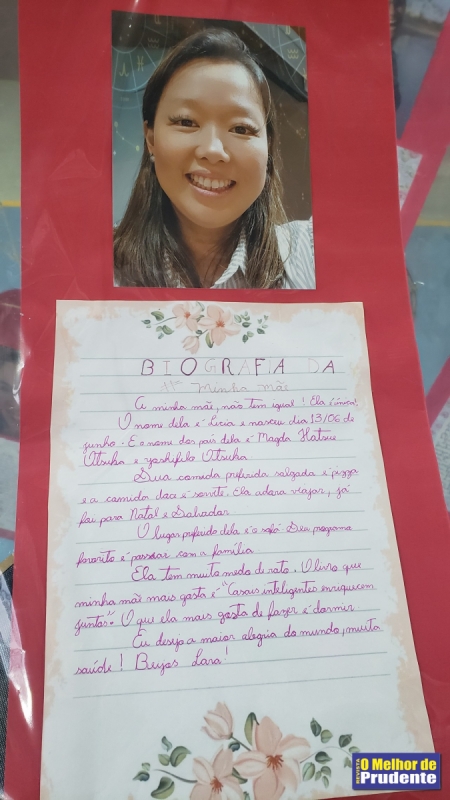 BIOGRAFIA DA
Minha Mãe
A minha mãe, não tem igual! Ela é única!
O nome dela é Licia e nasceu dia 13/06 de
junho. E o nome dos pais dela é Magda Hatsue
Otsuka e Yoshifilo Otsuka
Sua comida preferida salgada é pizza
e a comida doce é sorvete. Ela adora viajar, já
foi para Natal e Salvador
O lugar preferido dela é o sofá Seu programa
favorito é passear com a família
Ela tem muito medo de rato. O livro que
minha mãe mais gosta é "Casais inteligentes enriquecem
juntos". O que ela mais gosta de fazer é dormir
Eu desejo a maior alegria do mundo, muita
saúde! Beijos Lara!
REVISTA
O Melhor de
Prudente